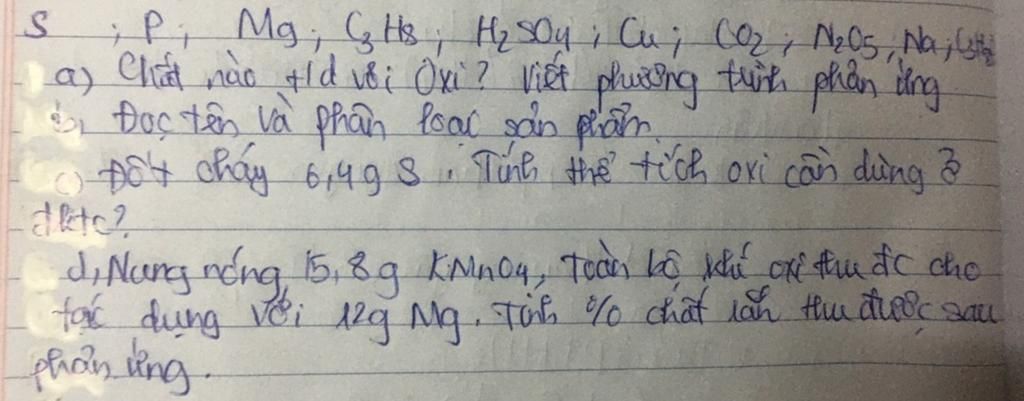 S ; P ; Mg ; C3H8 ; H2SO4 ; Cu ; CO2 ; N2O5, Na ;
a) Chất nào t/d với Oxi? Viết phương trình phản ứng
b, Đọc tên và phân loại sản phẩm
c) Đốt cháy 6,4g S. Tính thể tích oxi cần dùng ở
đktc?
d, Nung nóng 15,8g KMnO4, toàn bộ khí oxi thu đc cho
tác dụng với 12g Mg. Tính % chất rắn thu được sau
phản ứng.